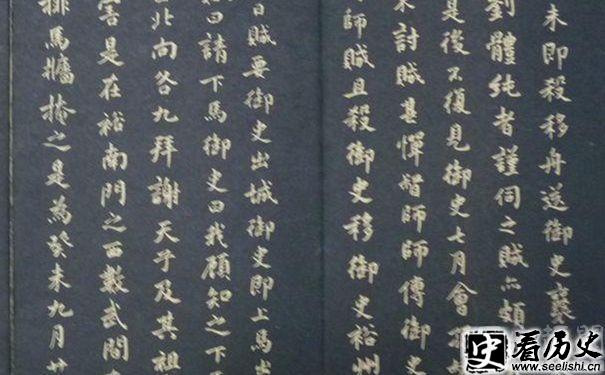 未即殺移舟送御史襄
劉體純者謹伺之賊亦頗
是後不復見御史七月會
討賊甚憚督師師傳御史
師賊且殺御史移御史裕州
日賊要御史出城御史即上馬
曰請下馬御史曰我顧知之下
北向各九拜謝天子及其祖
害是在裕南門之西數武間
排馬牆掩之是為癸未九月廿
看历史
www.seelishi.cn